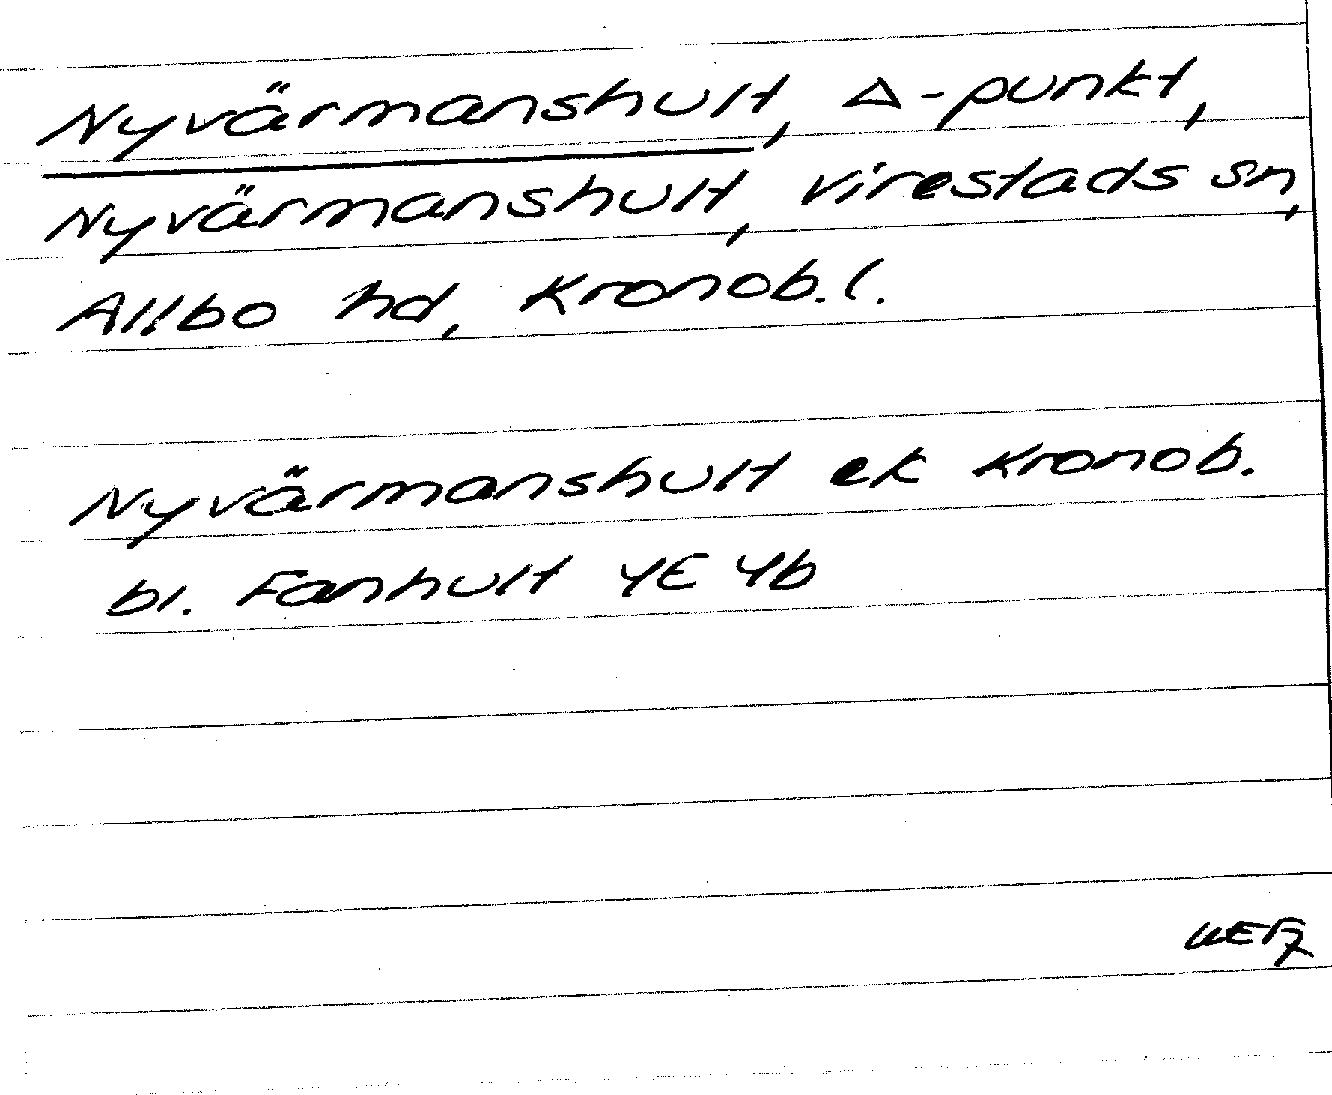 Nyvärmanshult, Δ-punkt,
Nyvärmanshult, Virestads sn,
Allbo hd, Kronob. l.
Nyvärmanshult ek Kronob.
bl. Fanhult 4E 4b